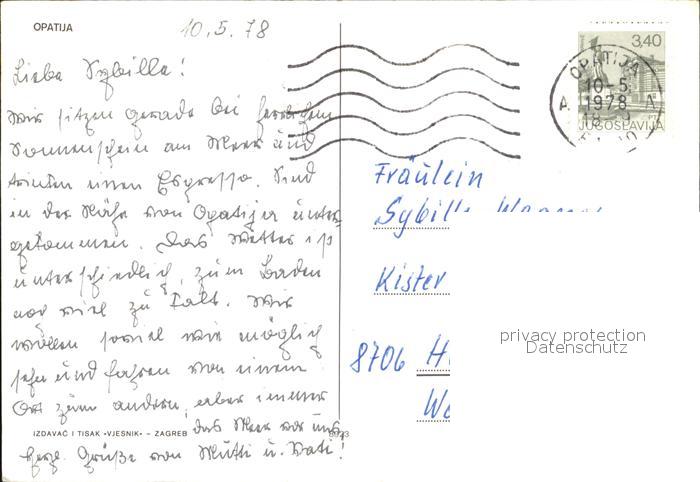 OPATIJA
10.5.78
Liebe Sybille!
Wir sitzen gerade bei herrlichem
Sonnenschein am Meer und
trinken einen Espresso. Sind
in der Nähe von Opatija unter-
gekommen. Das Wetter ist
unterschiedlich, zum Baden
noch viel zu kalt. Wir
wollen soviel wie möglich
sehn und fahren von einem
Ort zum andern, aber immer
das Meer vor uns
herzl. Grüße von Mutti u. Vati!
IZDAVAČ I TISAK »VJESNIK« – ZAGREB
3.40
JUGOSLAVIJA
OPATIJA
10-5
1978
A A
18
Fräulein
Sybille
Kister
8706 H
We
privacy protection
Datenschutz